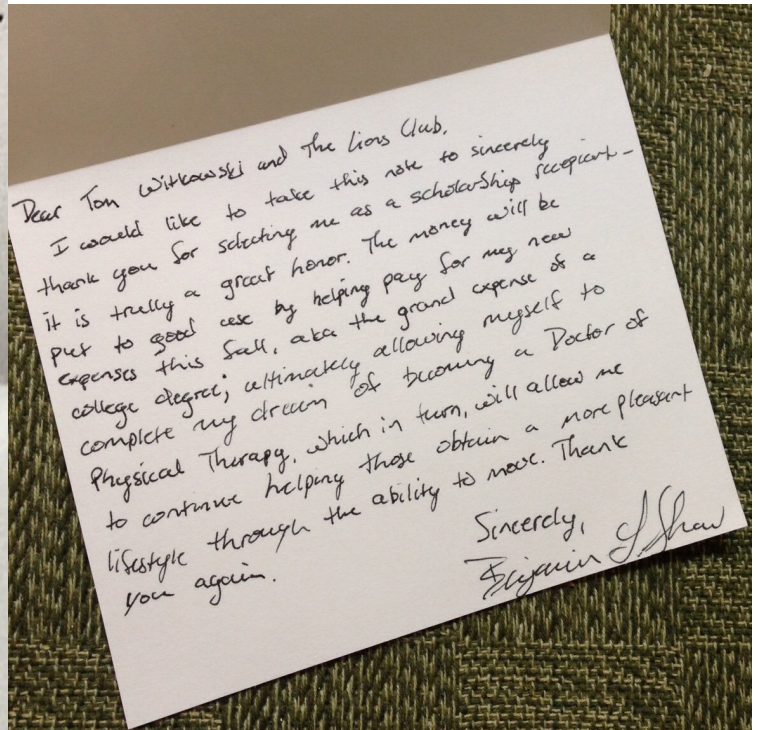 Dear Tom Witkowski and The Lions Club,
I would like to take this note to sincerely
thank you for selecting me as a scholarship recepient-
it is trully a great honor. The money will be
put to good use by helping pay for my new
expenses this fall, aka the grand expense of a
college degree; ultimately allowing myself to
complete my dream of becoming a Doctor of
Physical Therapy, which in turn, will allow me
to continue helping those obtain a more pleasant
lifestyle through the ability to move. Thank
you again.
Sincerely,
Benjamin L. Shaw